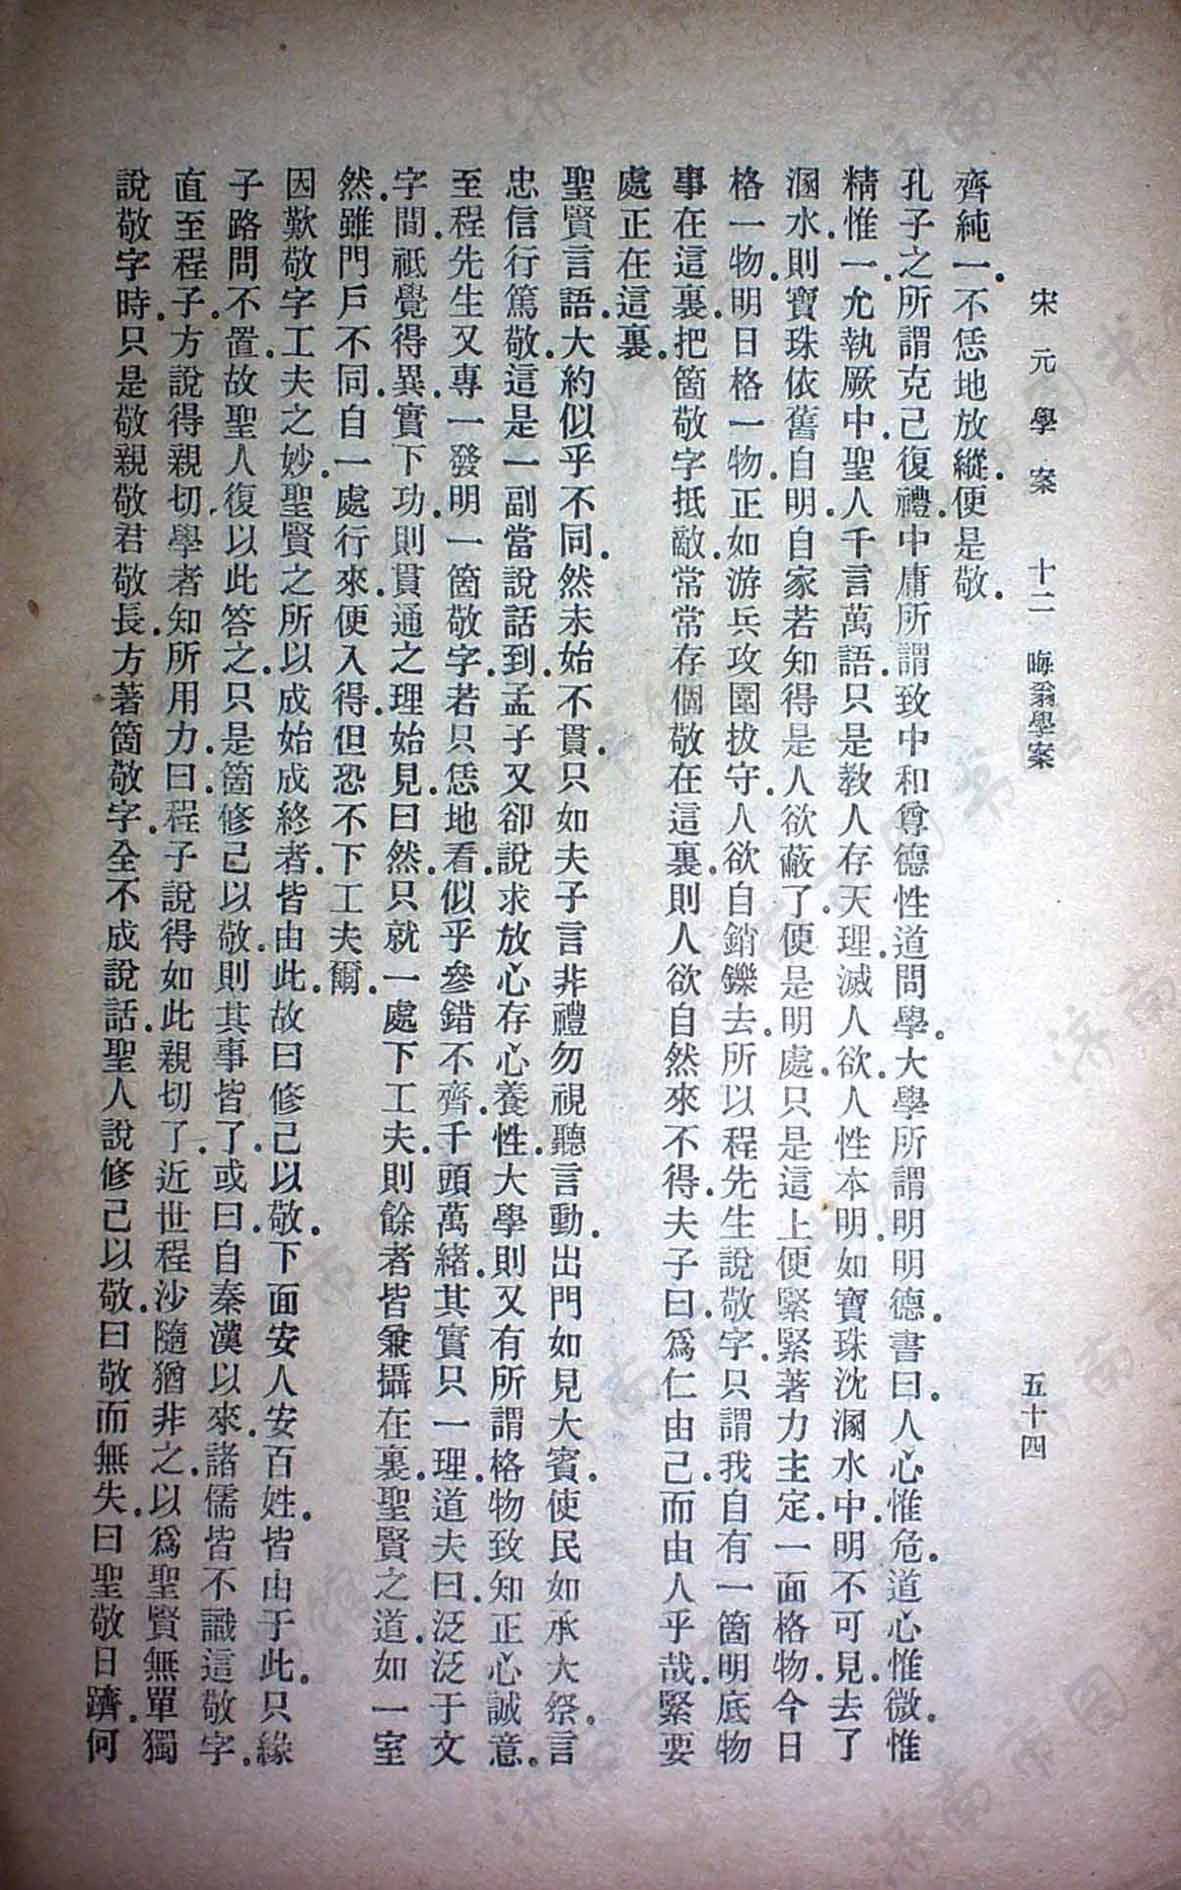 宋元學案 十二 晦翁學案 五十四
齊純一不恁地放縱便是敬
孔子之所謂克己復禮中庸所謂致中和尊德性道問學大學所謂明明德書曰人心惟危道心惟微惟
精惟一允執厥中聖人千言萬語只是教人存天理滅人欲人性本明如寶珠沈溷水中明不可見去了
溷水則寶珠依舊自明自家若知得是人欲蔽了便是明處只是這上便緊緊著力主定一面格物今日
格一物明日格一物正如游兵攻圍拔守人欲自銷鑠去所以程先生說敬字只謂我自有一箇明底物
事在這裏把箇敬字抵敵常常存個敬在這裏則人欲自然來不得夫子曰爲仁由己而由人乎哉緊要
處正在這裏
聖賢言語大約似乎不同然未始不貫只如夫子言非禮勿視聽言動出門如見大賓使民如承大祭言
忠信行篤敬這是一副當說話到孟子又卻說求放心存心養性大學則又有所謂格物致知正心誠意
至程先生又專一發明一箇敬字若只恁地看似乎參錯不齊千頭萬緒其實只一理道夫曰泛泛于文
字間祇覺得異實下功則貫通之理始見曰然只就一處下工夫則餘者皆兼攝在裏聖賢之道如一室
然雖門戶不同自一處行來便入得但恐不下工夫爾
因歎敬字工夫之妙聖賢之所以成始成終者皆由此故曰修己以敬下面安人安百姓皆由于此只緣
子路問不置故聖人復以此答之只是箇修己以敬則其事皆了或曰自秦漢以來諸儒皆不識這敬字
直至程子方說得親切學者知所用力曰程子說得如此親切了近世程沙隨猶非之以爲聖賢無單獨
說敬字時只是敬親敬君敬長方著箇敬字全不成說話聖人說修己以敬曰敬而無失曰聖敬日躋何